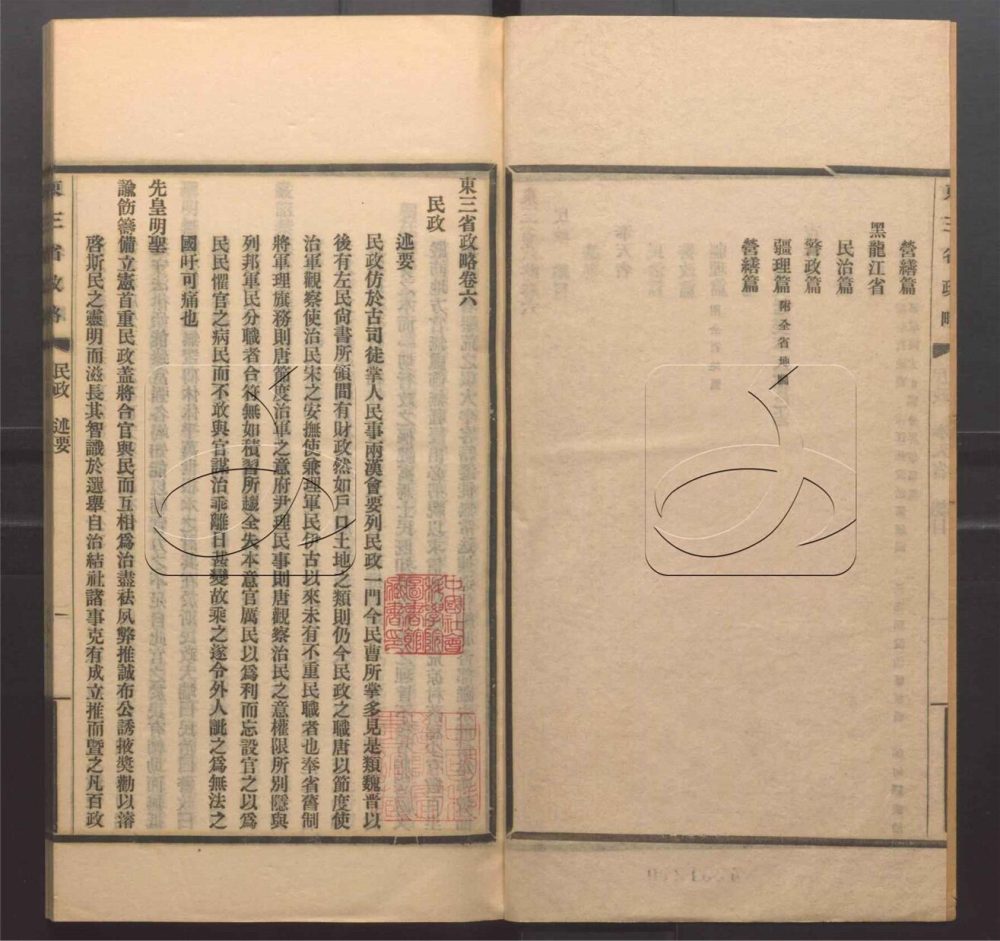 營繕篇
黑龍江省
民治篇
警政篇
疆理篇附全省地圖
營繕篇
東三省政略卷六
民政
述要
民政仿於古司徒掌人民事兩漢會要列民政一門今民曹所掌多見是類魏晋以
後有左民尚書所領間有財政然如戶口土地之類則仍今民政之職唐以節度使
治軍觀察使治民宋之安撫使兼理軍民伊古以來未有不重民職者也奉省舊制
將軍理旗務則唐節度治軍之意府尹理民事則唐觀察治民之意權限所別隱與
列邦軍民分職者合符無如積習所趨全失本意官厲民以爲利而忘設官之以爲
民民懼官之病民而不敢與官謀治乖離日甚變故乘之遂令外人訿之爲無法之
國吁可痛也
先皇明聖
諭飭籌備立憲首重民政蓋將合官與民而互相爲治盡袪夙弊推誠布公誘掖獎勸以濬
啓斯民之靈明而滋長其智識於選舉自治結社諸事克有成立推而暨之凡百政
東三省政略 民政 述要 一